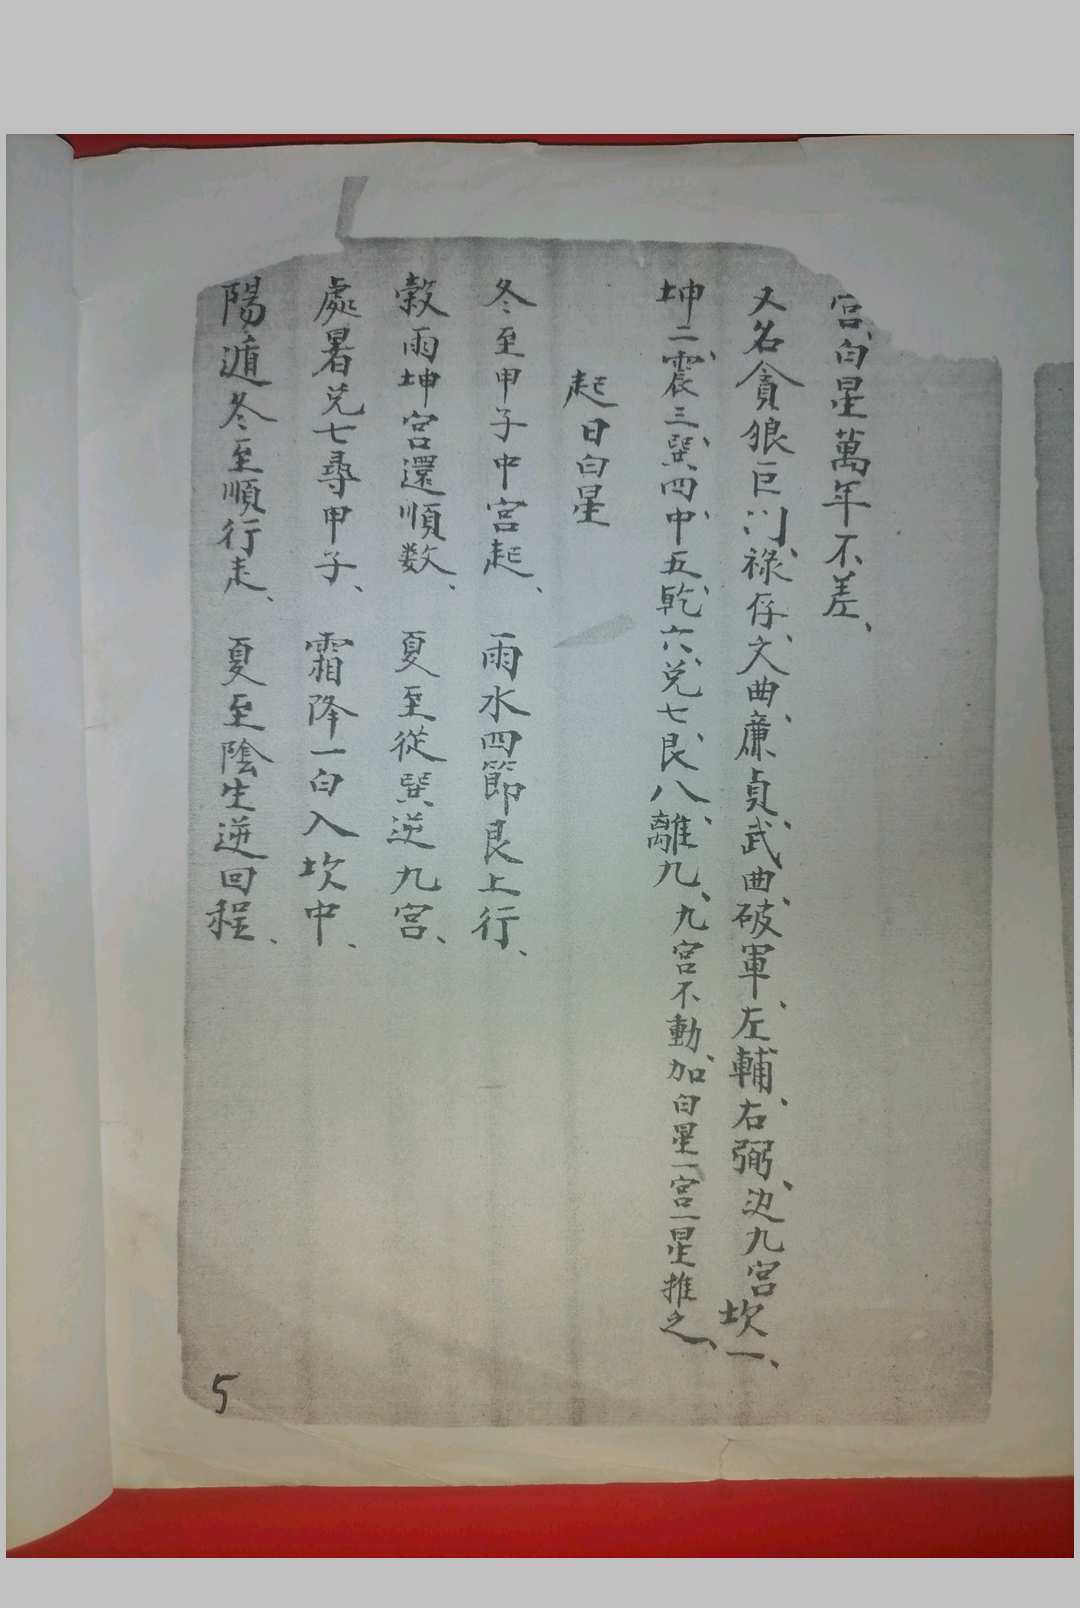 宮、白星萬年不差、
又名貪狼巨门、祿存、文曲、廉貞、武曲、破軍、左輔、右弼、边九宮坎一、
坤二震三、巽四中、五乾、六、兑七艮、八、離九、九宮不動、加白星一宮一星推之、
起日白星
冬至甲子中宮起、雨水四節艮上行、
榖雨坤宮還順数、夏至從巽逆九宮、
處暑兑七尋甲子、霜降一白入坎中、
陽遁冬至順行走、夏至陰生逆回程、
5